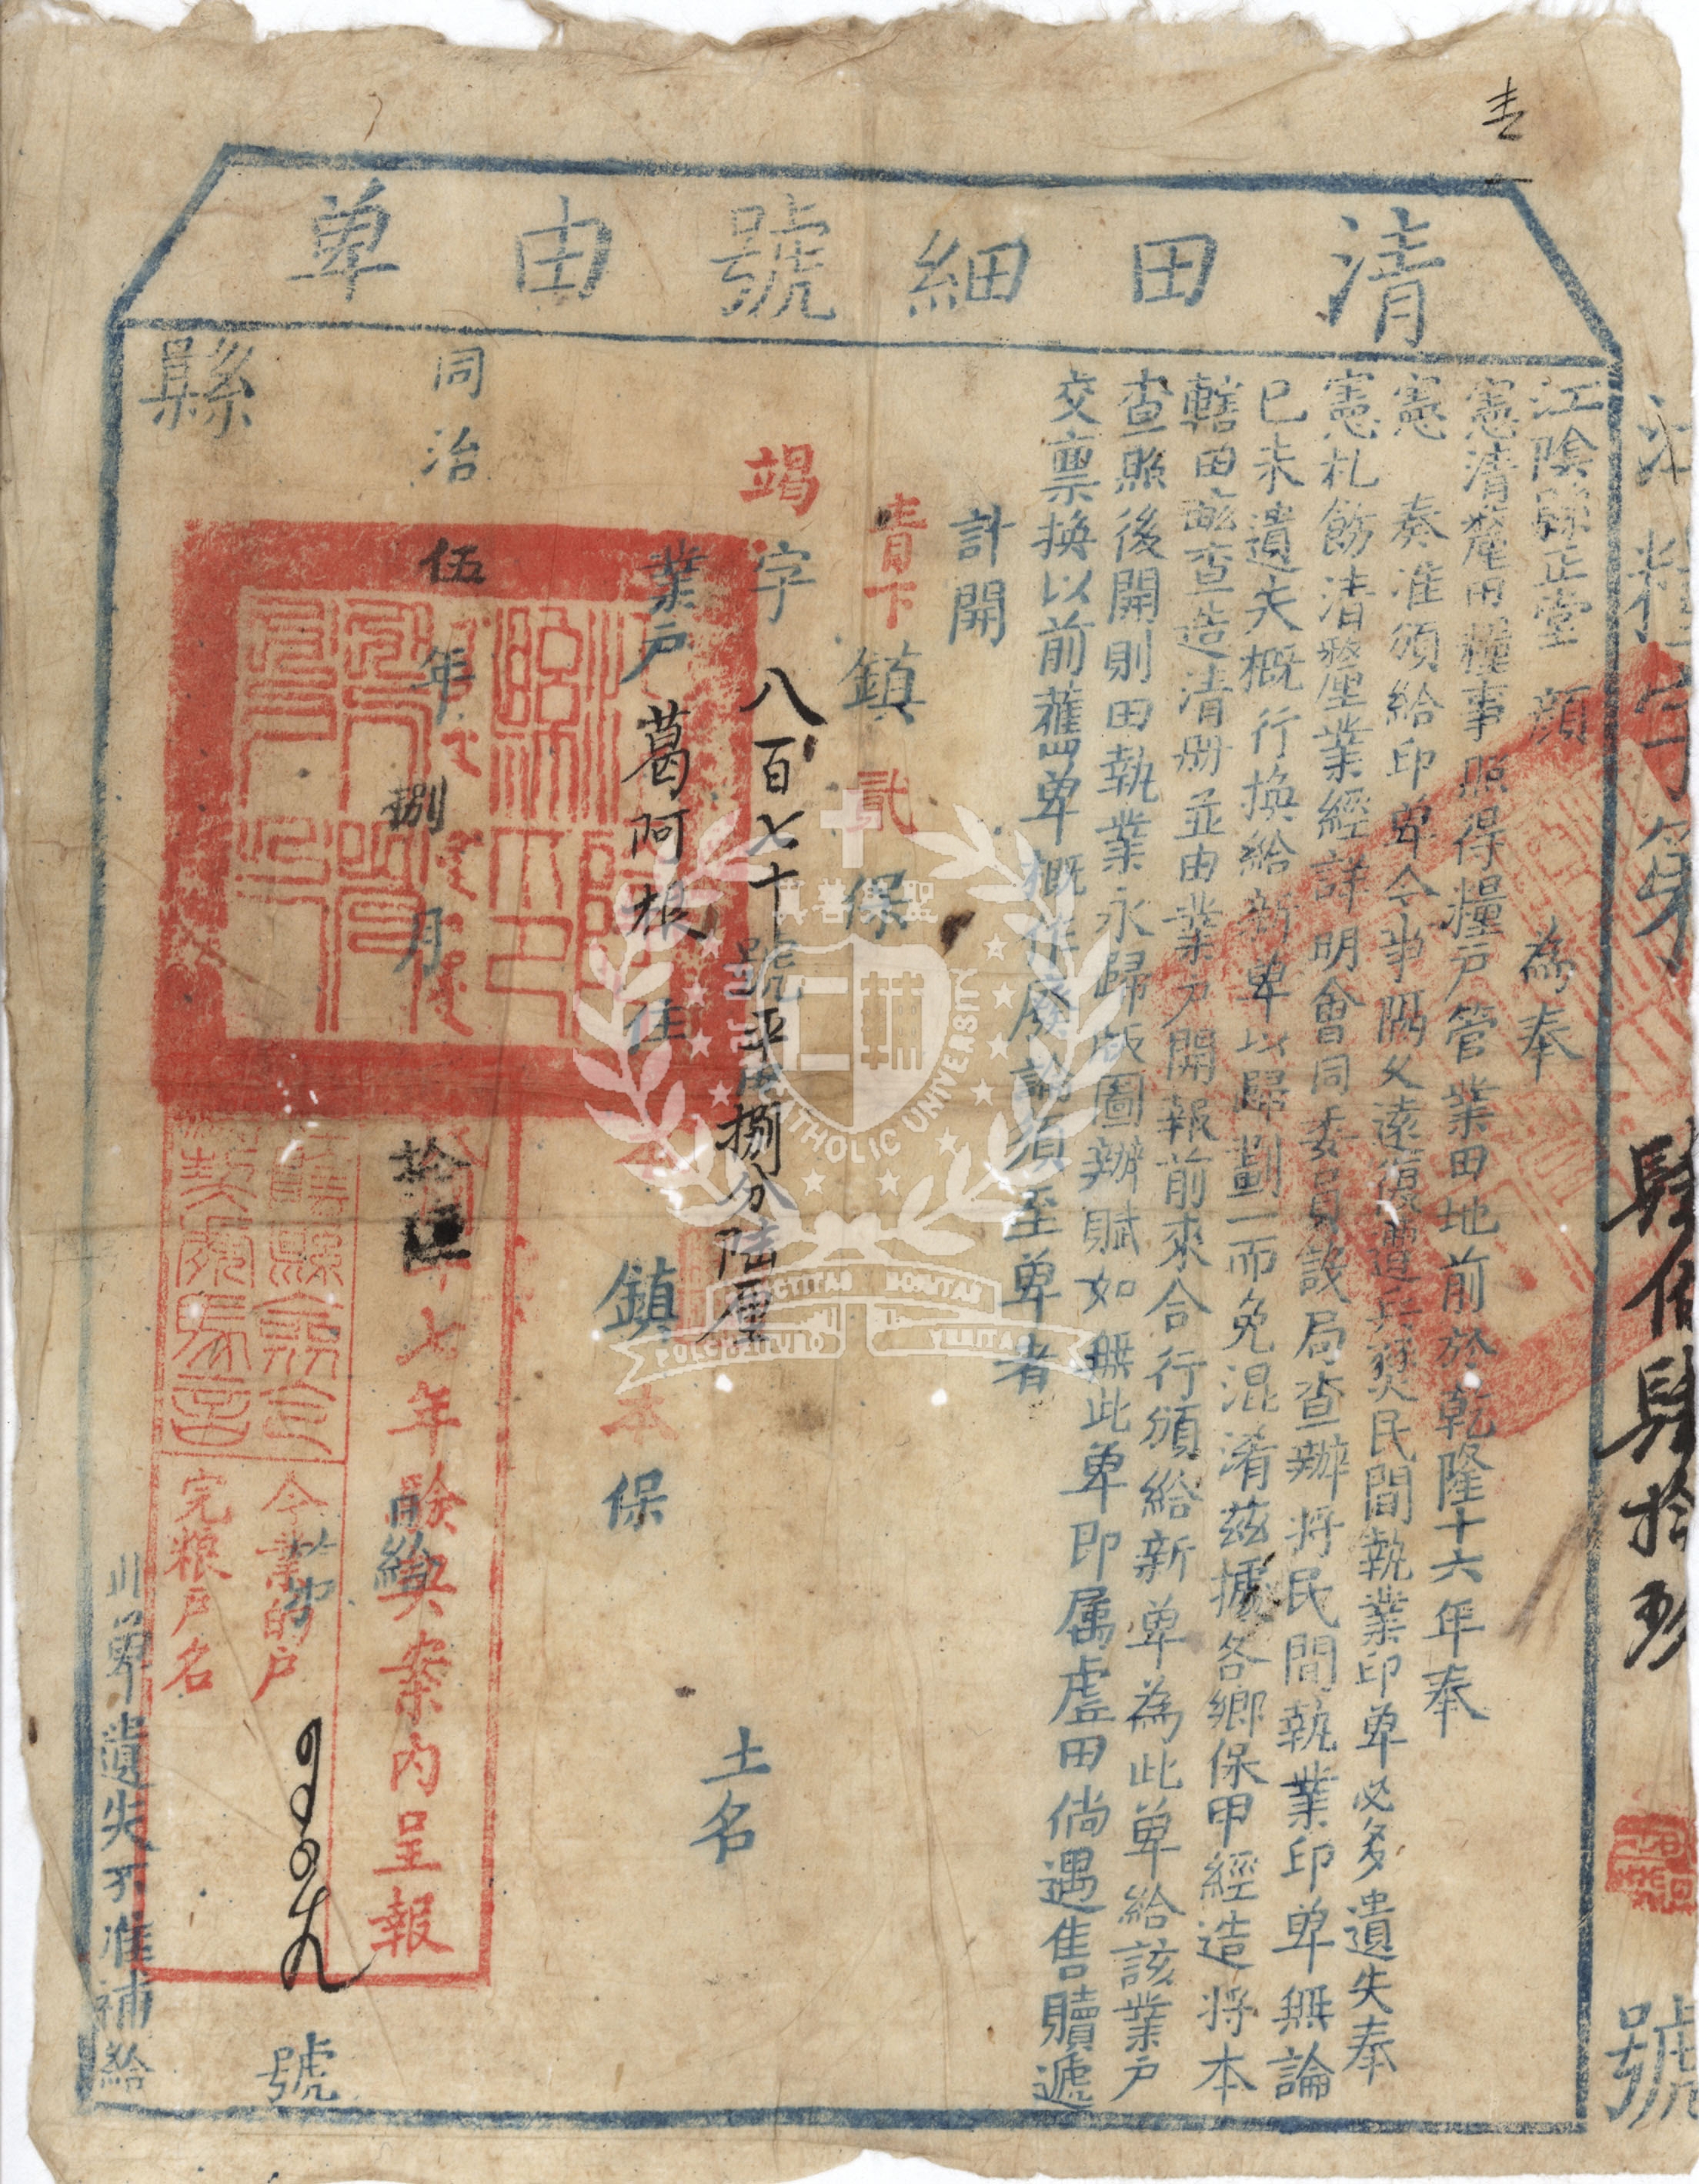 清田細號由单
江陰縣正堂 顏 為奉
憲清釐田糧事照得糧户管業田地前於乾隆十六年奉
憲 奏准頒給印单令事隔久遠復遭兵燹民間執業印单必多遺失奉
憲札飭清釐業經詳明會同委員設局查辦將民間執業印单無論
已未遺失概行換給新单以歸劃一而免混淆茲據各鄉保甲經造將本
轄田畝查造清册並由業户開報前來合行頒給新单為此单給該業户
查照後開則田執業永歸版圖辦賦如無此单即属虛田倘遇售贖遞
交稟換以前舊单概作廢論須至单者
計開
青下鎮貳保
竭字八百七十號平田捌分陸厘 土名
業户葛阿根住 鎮本保
同治伍年捌月拾 日給
縣
號
川单遺失不准補給
七年驗契案内呈報
今業的户
完粮户名
號
肆佰肆拾珍
聖保善美
CATHOLIC UNIVERSITY